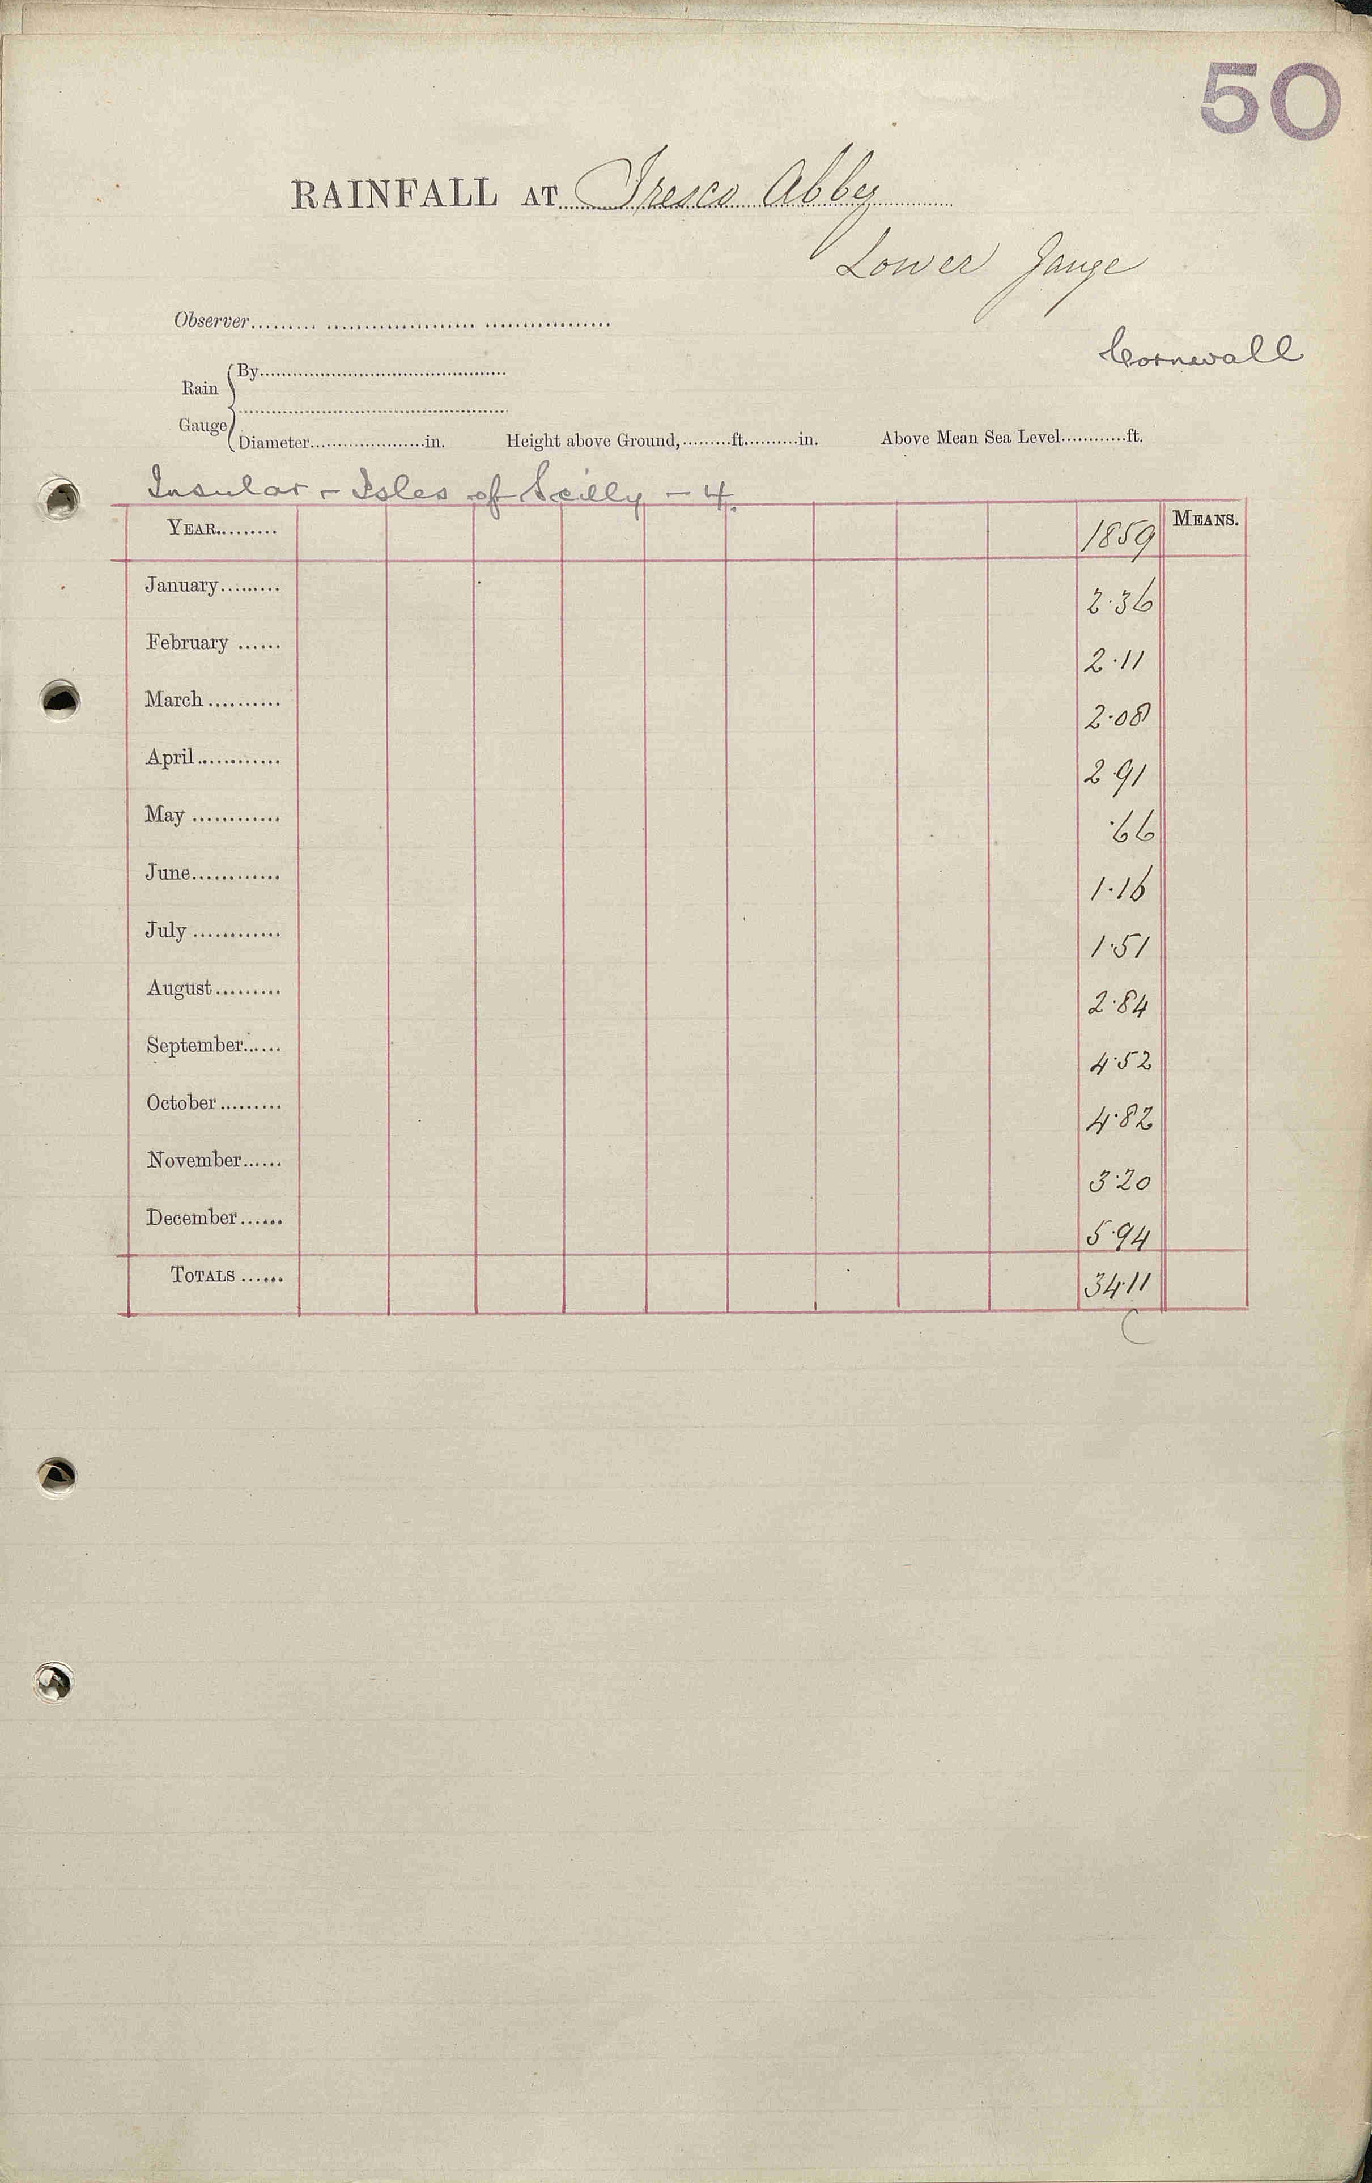 50
RAINFALL AT Tresco Abby
Lower Gauge
Observer
Cornwall
Rain Gauge { By
Diameter in. Height above Ground, ft. in. Above Mean Sea Level ft.
Insular - Isles of Scilly - 4.
YEAR 1859 MEANS.
January 2.36
February 2.11
March 2.08
April 2.91
May .66
June 1.16
July 1.51
August 2.84
September 4.52
October 4.82
November 3.20
December 5.94
TOTALS 34.11
C